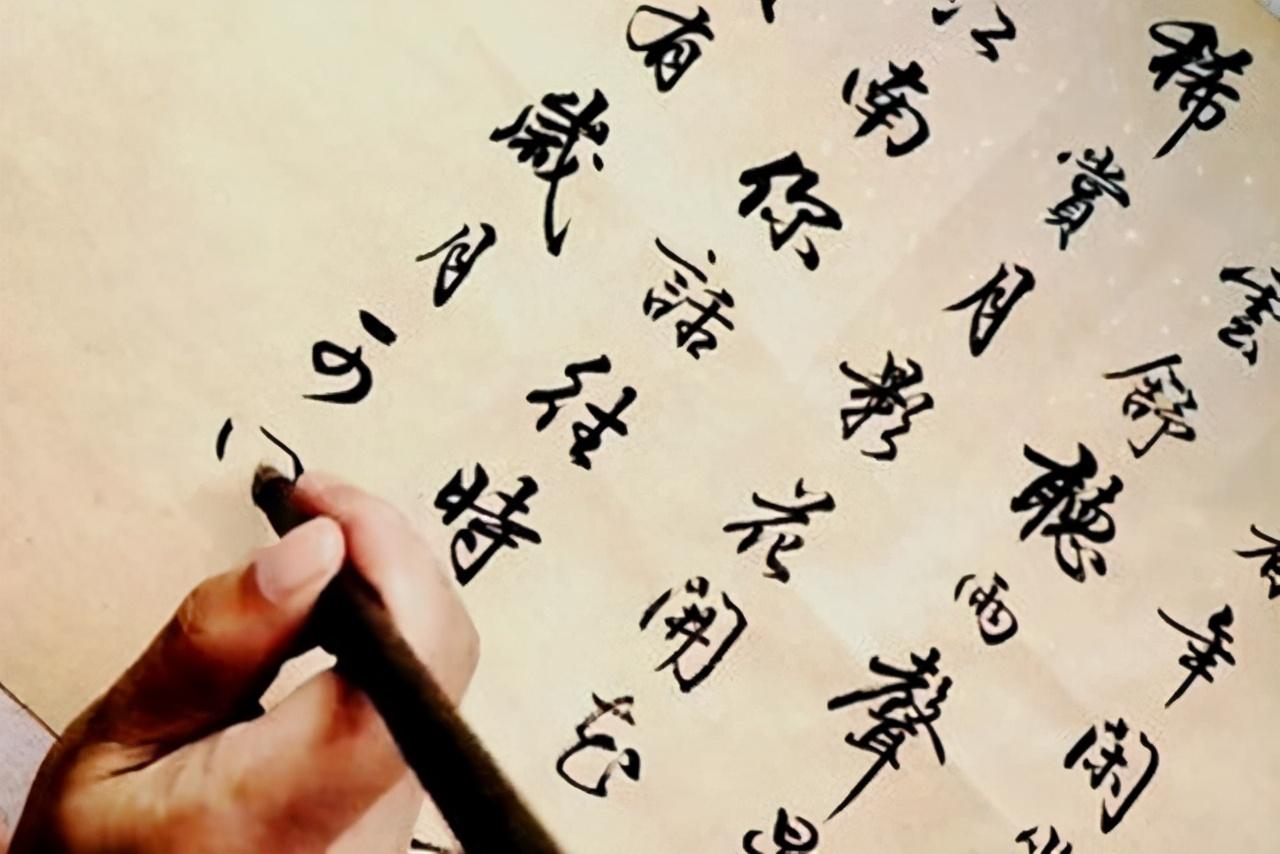 有年閑
雲舒聽雨聲
稀賞月影花開花
江南你話往時
有歲月可